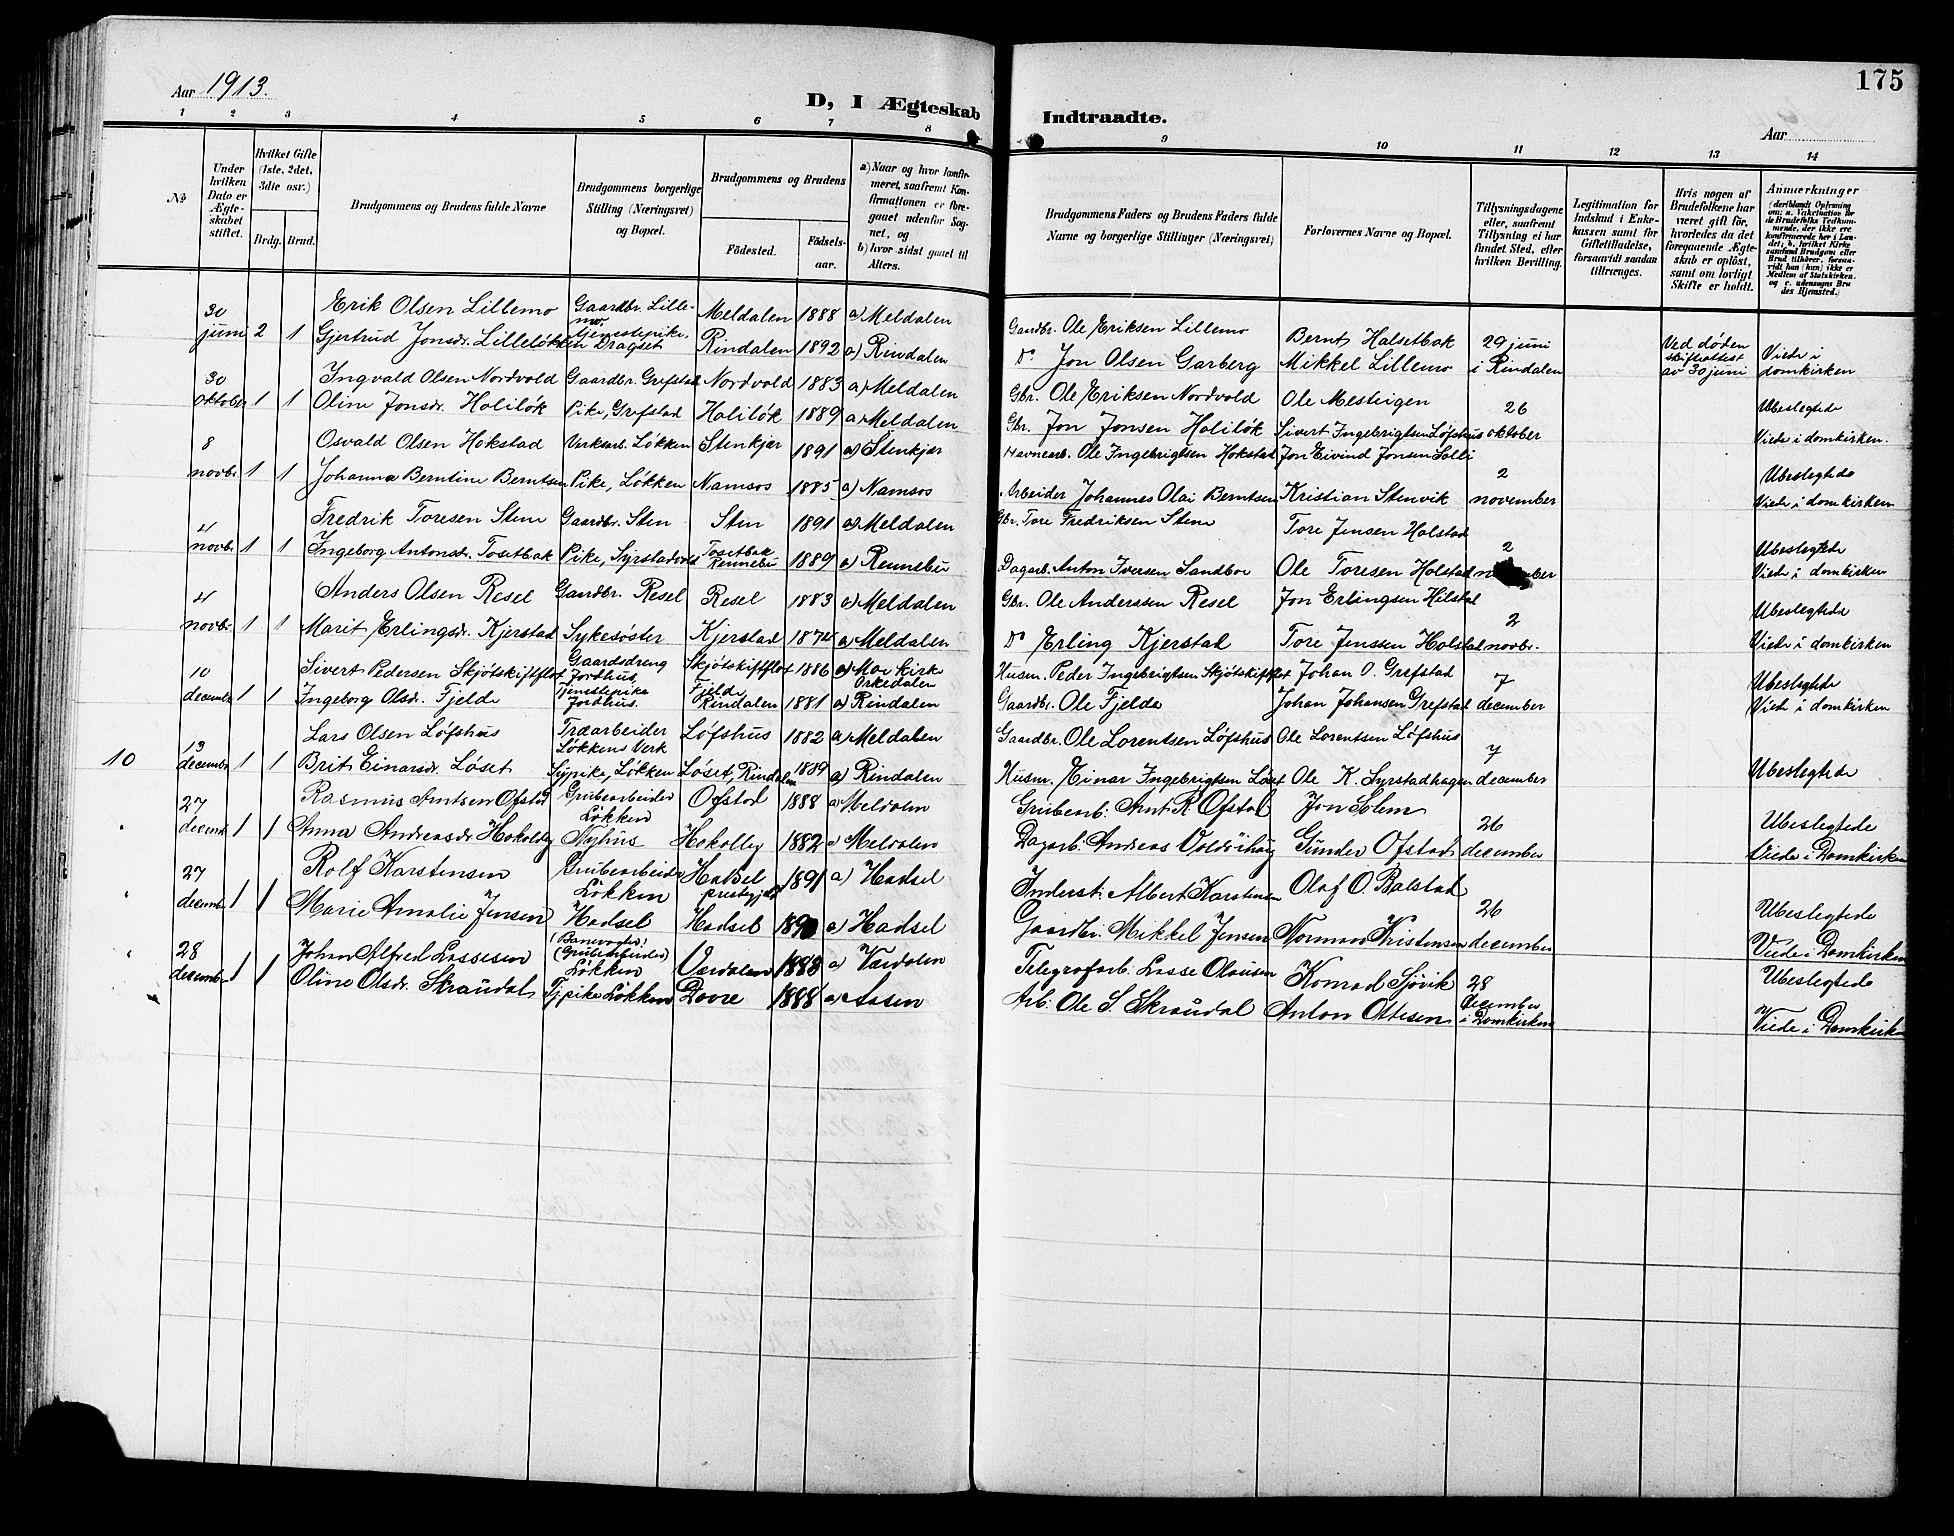 Aar 1913.
D, I Ægteskab Indtraadte.
175
Aar
1 2 3 4 5 6 7 8 9 10 11 12 13 14
No
Under hvilken Dato er Ægteskabet stiftet.
Hvilket Gifte (1ste, 2det, 3die osr.)
Brdg. Brud.
Brudgommens og Brudens fulde Navne
Brudgommens borgerlige Stilling (Næringsvei) og Bopæl.
Brudgommens og Brudens
Födested. Födselsaar.
a) Naar og hvor konfirmeret, saafremt Konfirmationen er foregaaet udenfor Sognet, og
b) hvor sidst gaaet til Alters.
Brudgommens Faders og Brudens Faders fulde Navne og borgerlige Stillinger (Næringsvei)
Forlovernes Navne og Bopæl.
Tillysningsdagene eller, saafremt Tillysning ei har fundet Sted, efter hvilken Bevilling.
Legitimation for Indskud i Enkekassen samt for Giftetilladelse, forsaavidt saadan tiltrænges.
Hvis nogen af Brudefolkene har været gift før, hvorledes da det foregaaende Ægteskab er opløst, samt om lovligt Skifte er holdt.
Anmærkninger
30 juni 2 1
Erik Olsen Lillemo Gaardbr. Lillemo Meldalen 1888 a) Meldalen Gaardbr. Ole Eriksen Lillemo Bernt Halsetbak 29 juni Ved døden
Gjertrud Jonsdr. Lilleløkken tjenestepike, Dragset Rindalen 1892 a) Rindalen Do Jon Olsen Garberg Mikkel Lillemo i Rindalen skifteattest av 30 juni Viede i domkirken
30 oktober 1 1
Ingvald Olsen Nordvold Gaardbr. Grefstad Nordvold 1883 a) Meldalen Gbr. Ole Eriksen Nordvold Ole Mesteigen 26 Ubeslegtede
Oline Jonsdr. Holiløk Pike, Grefstad Holiløk 1889 a) Meldalen Gbr. Jon Jonsen Holiløk Sivert Ingebrigtsen Løfshus oktober Viede i domkirken.
8 novbr. 1 1
Osvald Olsen Hokstad Verksarb. Løkken Stenkjær 1891 a) Stenkjær Havnearb. Ole Ingebrigtsen Hokstad Jon Eivind Jonsen Solli 2 Ubeslegtede
Johanna Berntine Berntsen Pike, Løkken Namsos 1885 a) Namsos Arbeider Johannes Olai Berntsen Kristian Stenvik november Viede i domkirken
4 novbr. 1 1
Fredrik Toresen Sten Gaardbr. Sten Sten 1891 a) Meldalen Gbr. Tore Fredriksen Sten Tore Jensen Holstad 2 Ubeslegtede
Ingeborg Antonsdr. Tosetbak Pike, Syrstadvold Tosetbak Rennebu 1889 a) Rennebu Dagarb. Anton Iversen Sandboe Ole Toresen Holstad november Viede i domkirken
4 novbr. 1 1
Anders Olsen Resel Gaardbr. Resel Resel 1883 a) Meldalen Gbr. Ole Anderssen Resel Jon Erlingsen Hilstad 2 Ubeslegtede
Marit Erlingsdr. Kjerstad Sykesøster Kjerstad 1874 a) Meldalen Do Erling Kjerstad Tore Jenssen Holstad novbr. Viede i domkirken
10 december 1 1
Sivert Pedersen Skjøtskiftflot Gaardsdreng Jordhus, Skjøtskiftflot 1886 a) Moe kirke Orkedalen Husm. Peder Ingebrigtsen Skjøtskiftflot Johan O. Grefstad 7 Ubeslegtede
Ingeborg Olsdr. Fjelde Tjenestepike Jordhus. Fjelde Rindalen 1881 a) Rindalen Gaardbr. Ole Fjelde Johan Johansen Grefstad december Viede i domkirken
10 13 december 1 1
Lars Olsen Løfshus Træarbeider Løkkens Verk Løfshus 1882 a) Meldalen Gaardbr. Ole Lorentsen Løfshus Ole Lorentsen Løfshus 7
Brit Einarsdr. Løset Sypike, Løkken Løset, Rindalen 1889 a) Rindalen Husm. Einar Ingebrigtsen Løset Ole K. Syrstadhagen december Ubeslegtede
27 decemb. 1 1
Rasmus Arntsen Ofstad Grubearbeider Løkken Ofstad 1888 a) Meldalen Grubearb. Arnt R Ofstad Jon Solem 26 Ubeslegtede
Anna Andreasdr Hokolley Nyhus Hokolley 1882 a) Meldalen Dagarb. Andreas Gunder Ofstad december Viede i Domkirken
27 decemb. 1 1
Rolf Karstensen Grubearbeider Løkken Hadsel prestegjeld 1891 a) Hadsel Inderst. Albert Karstensen Olaf O. Balstad 26 Ubeslegtede
Marie Amalie Jensen Hadsel Hadsel a) Hadsel Gaardbr. Mikkel Jensen Norman Kristensen december Viede i Domkirken
28 decembr 1 1
Johan Alfred Lassesen (Banevogter) (Grubearbeider) Løkken Værdalen 1888 a) Værdalen Telegrafarb. Lasse Olausen Konrad Sjøvik 28 Ubeslegtede
Oline Olsdr. Skraudal Tjpike Løkken Dovre 1888 a) Aasen Arb. Ole S. Skraudal Anton Ottesen december i Domkirken Viede i Domkirken